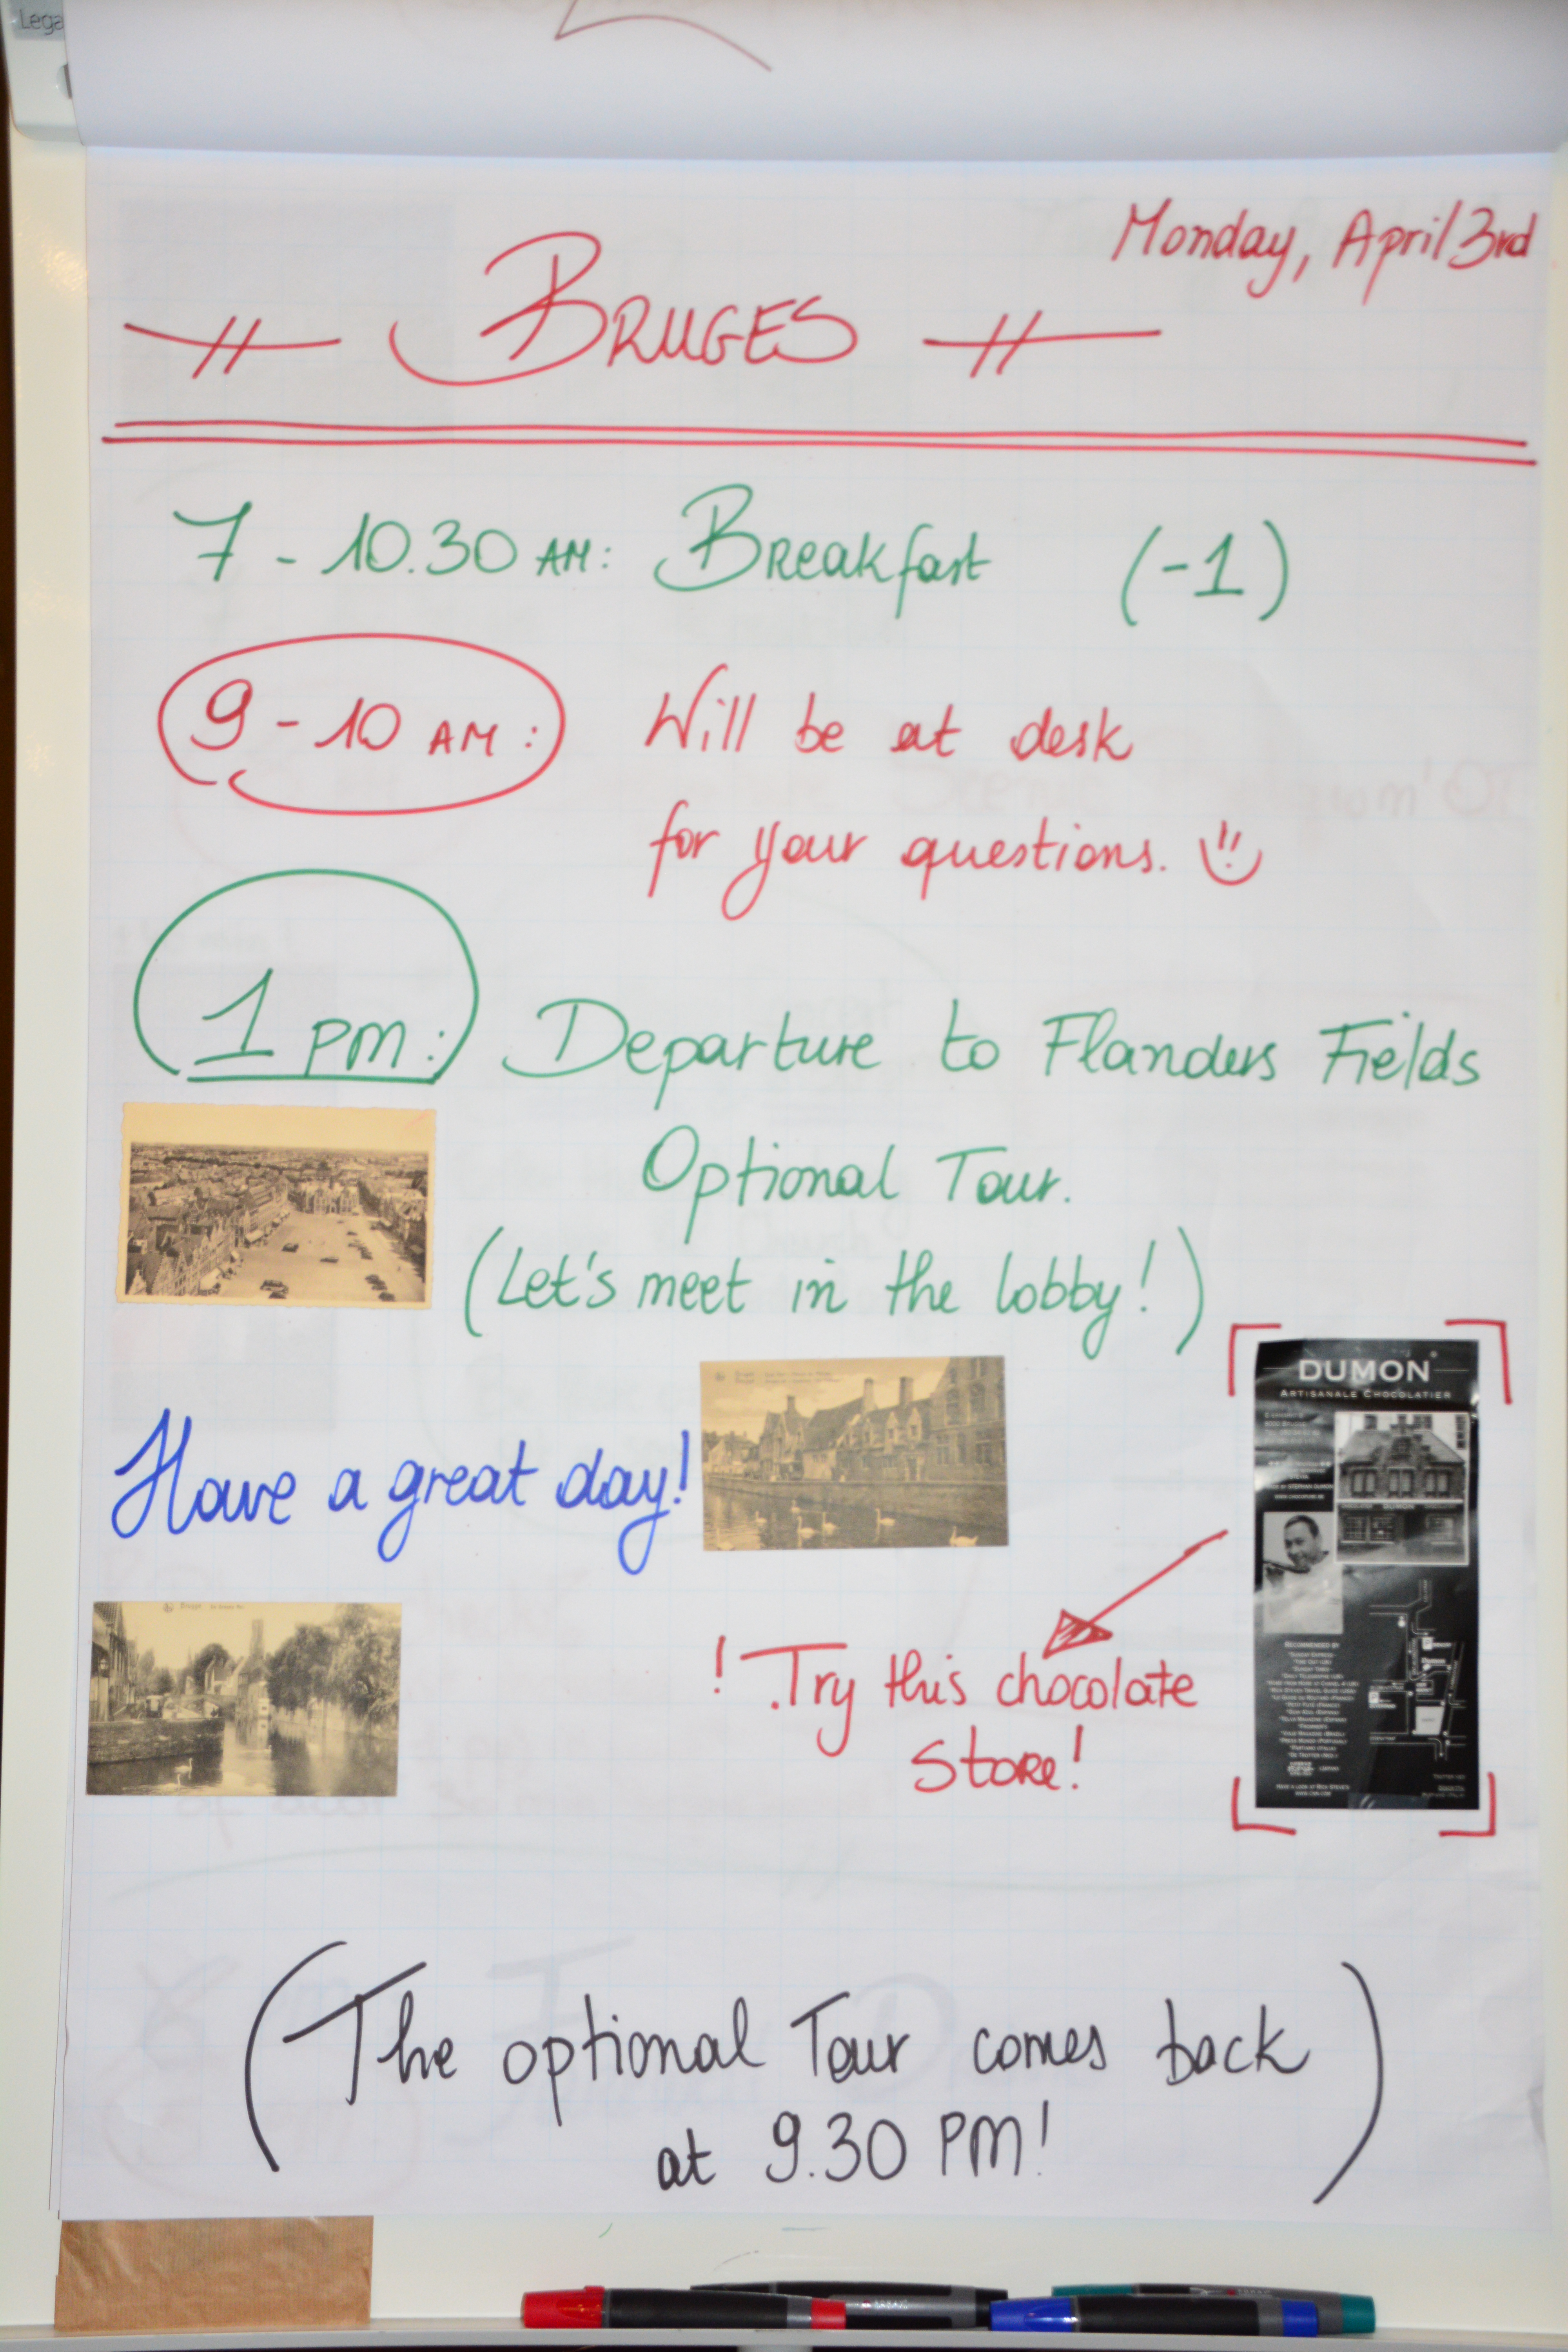 Lega
Monday, April 3rd
BRUGES
7 - 10.30 AM: Breakfast (-1)
9 - 10 AM: Will be at desk
for your questions.
1 PM: Departure to Flanders Fields
Optional Tour.
(Let's meet in the lobby!)
DUMON
ARTISANALE CHOCOLATIER
Have a great day!
! Try this chocolate
Store!
RECOMMENDED BY
(The optional Tour comes back
at 9.30 PM!)